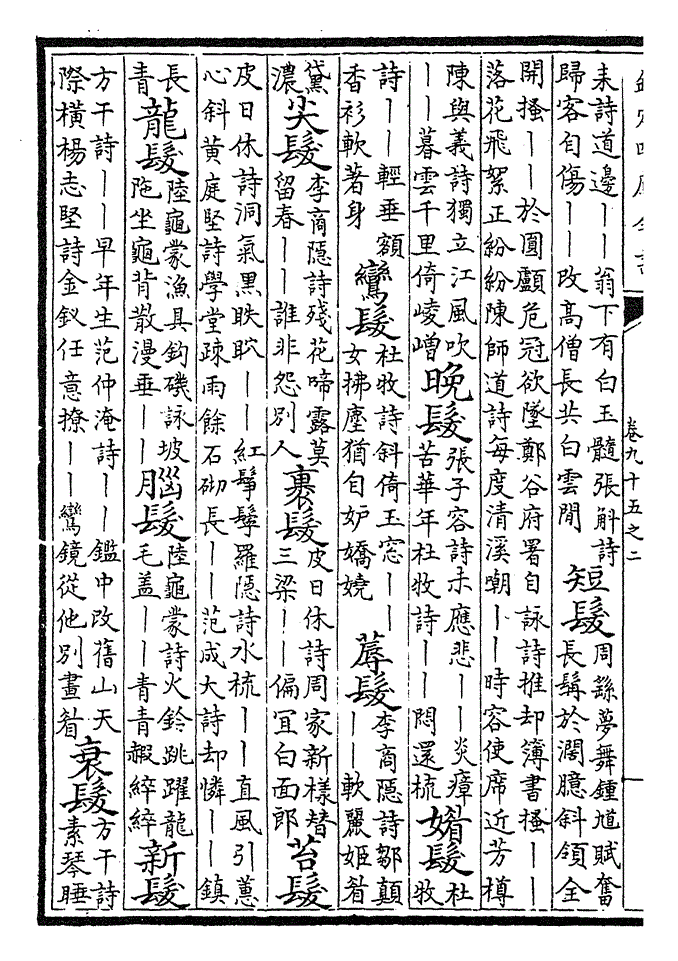 欽定四庫全書
卷九十五之二
耒詩道邊——翁下有白玉髓張斛詩
歸客自傷——改高僧長共白雲閒
短髮
周繇夢舞鍾馗賦奮
長鬅於闊臆斜領全
開搔——於圓顱危冠欲墜鄭谷府署自詠詩推却簿書搔——
落花飛絮正紛紛陳師道詩每度清溪嘲——時容使席近芳樽
陳與義詩獨立江風吹
——暮雲千里倚崚嶒
晚髮
張子容詩未應悲——炎瘴
苦華年杜牧詩——悶還梳
媠髮
杜
牧
詩——輕垂額
香衫軟著身
鸞髮
杜牧詩斜倚玉窓——
女拂塵猶自妒嬌嬈
蓐髮
李商隱詩鄒顛
——軟麗姬眉
黛
濃
尖髮
李商隱詩殘花啼露莫
留春——誰非怨別人
裹髮
皮日休詩周家新様替
三梁——偏宜白面郎
苔髮
皮日休詩洞氣黑眣䀣——紅鬇鬡羅隱詩水梳——直風引蕙
心斜黄庭堅詩學堂疎雨餘石砌長——范成大詩却憐——鎮
長
青
龍髮
陸龜蒙漁具釣磯詠坡
陁坐龜背散漫垂——
腦髮
陸龜蒙詩火鈴跳躍龍
毛盖——青青赮綷綷
新髮
方干詩——早年生范仲淹詩——鑑中改舊山天
際橫楊志堅詩金釵任意撩——鸞鏡從他別畫眉
衰髮
方干詩
素琴睡